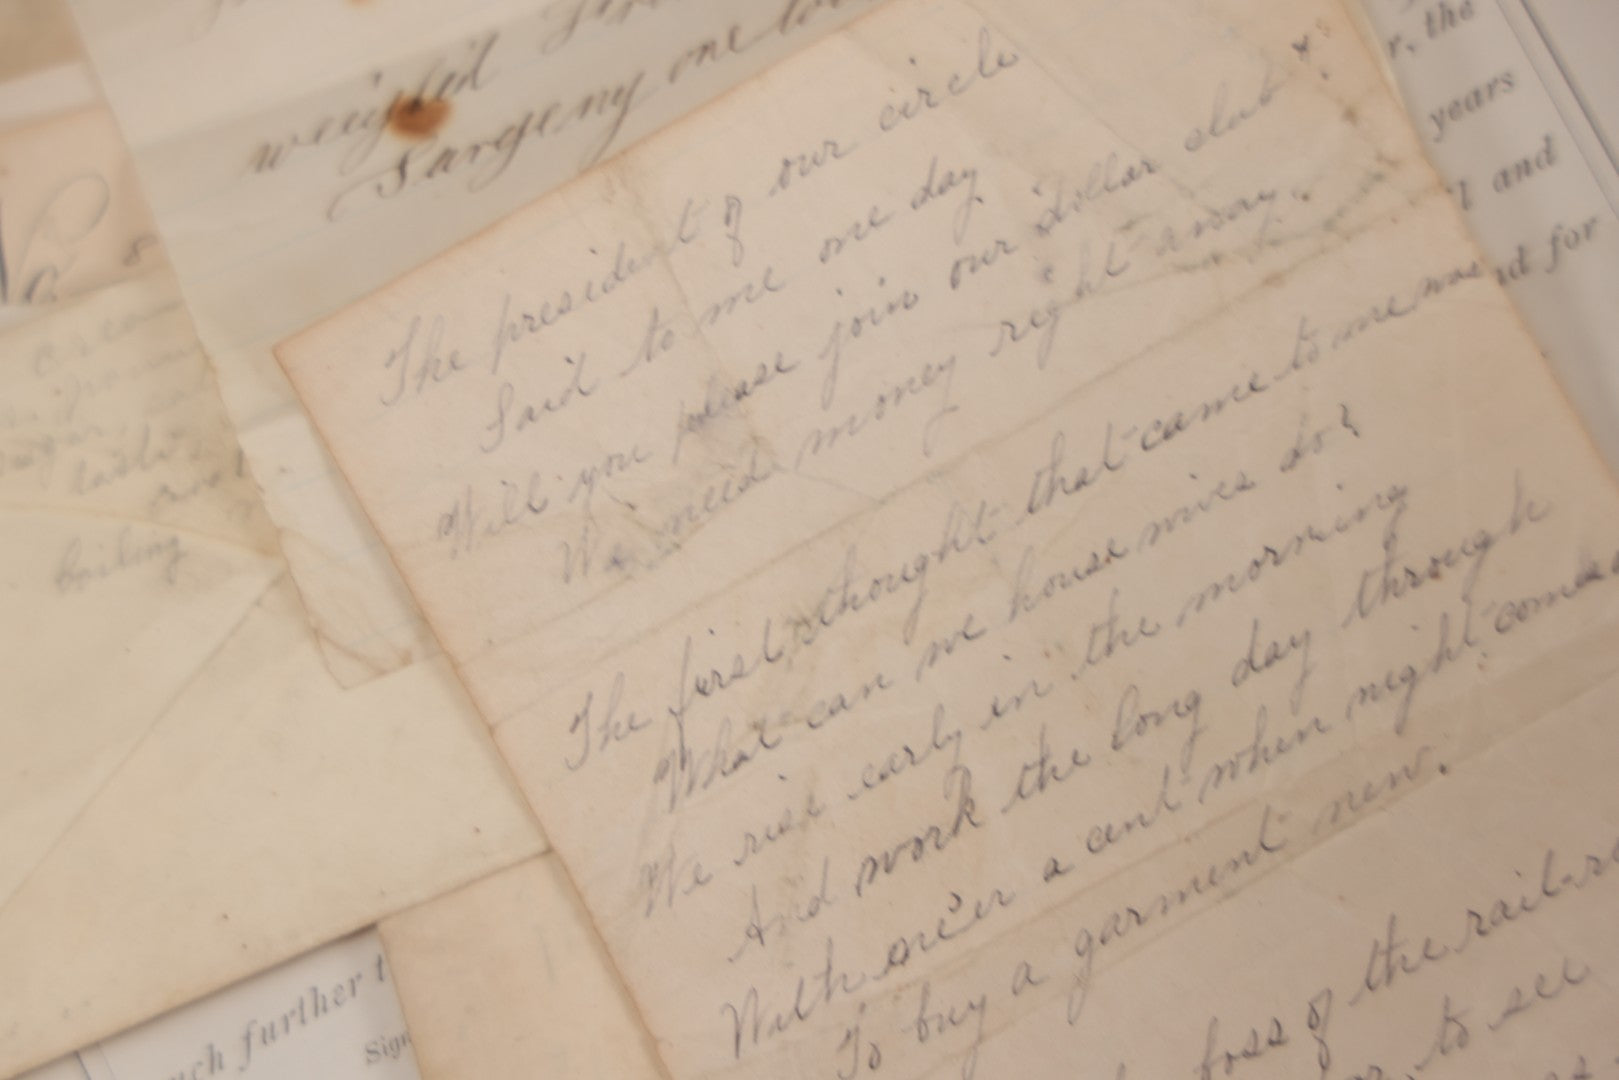 weighed
Surgeny one
The president of our circle
Said to me one day
Will you please join our dollar club
We need money right away.
The first thought that came to me was
What can we house wives do?
We rise early in the morning
And work the long day through
With ne'er a cent when night comes
To buy a garment new.
foss of the rail-r
to see
r, the
years
and
for
boiling
ch further t
Sign